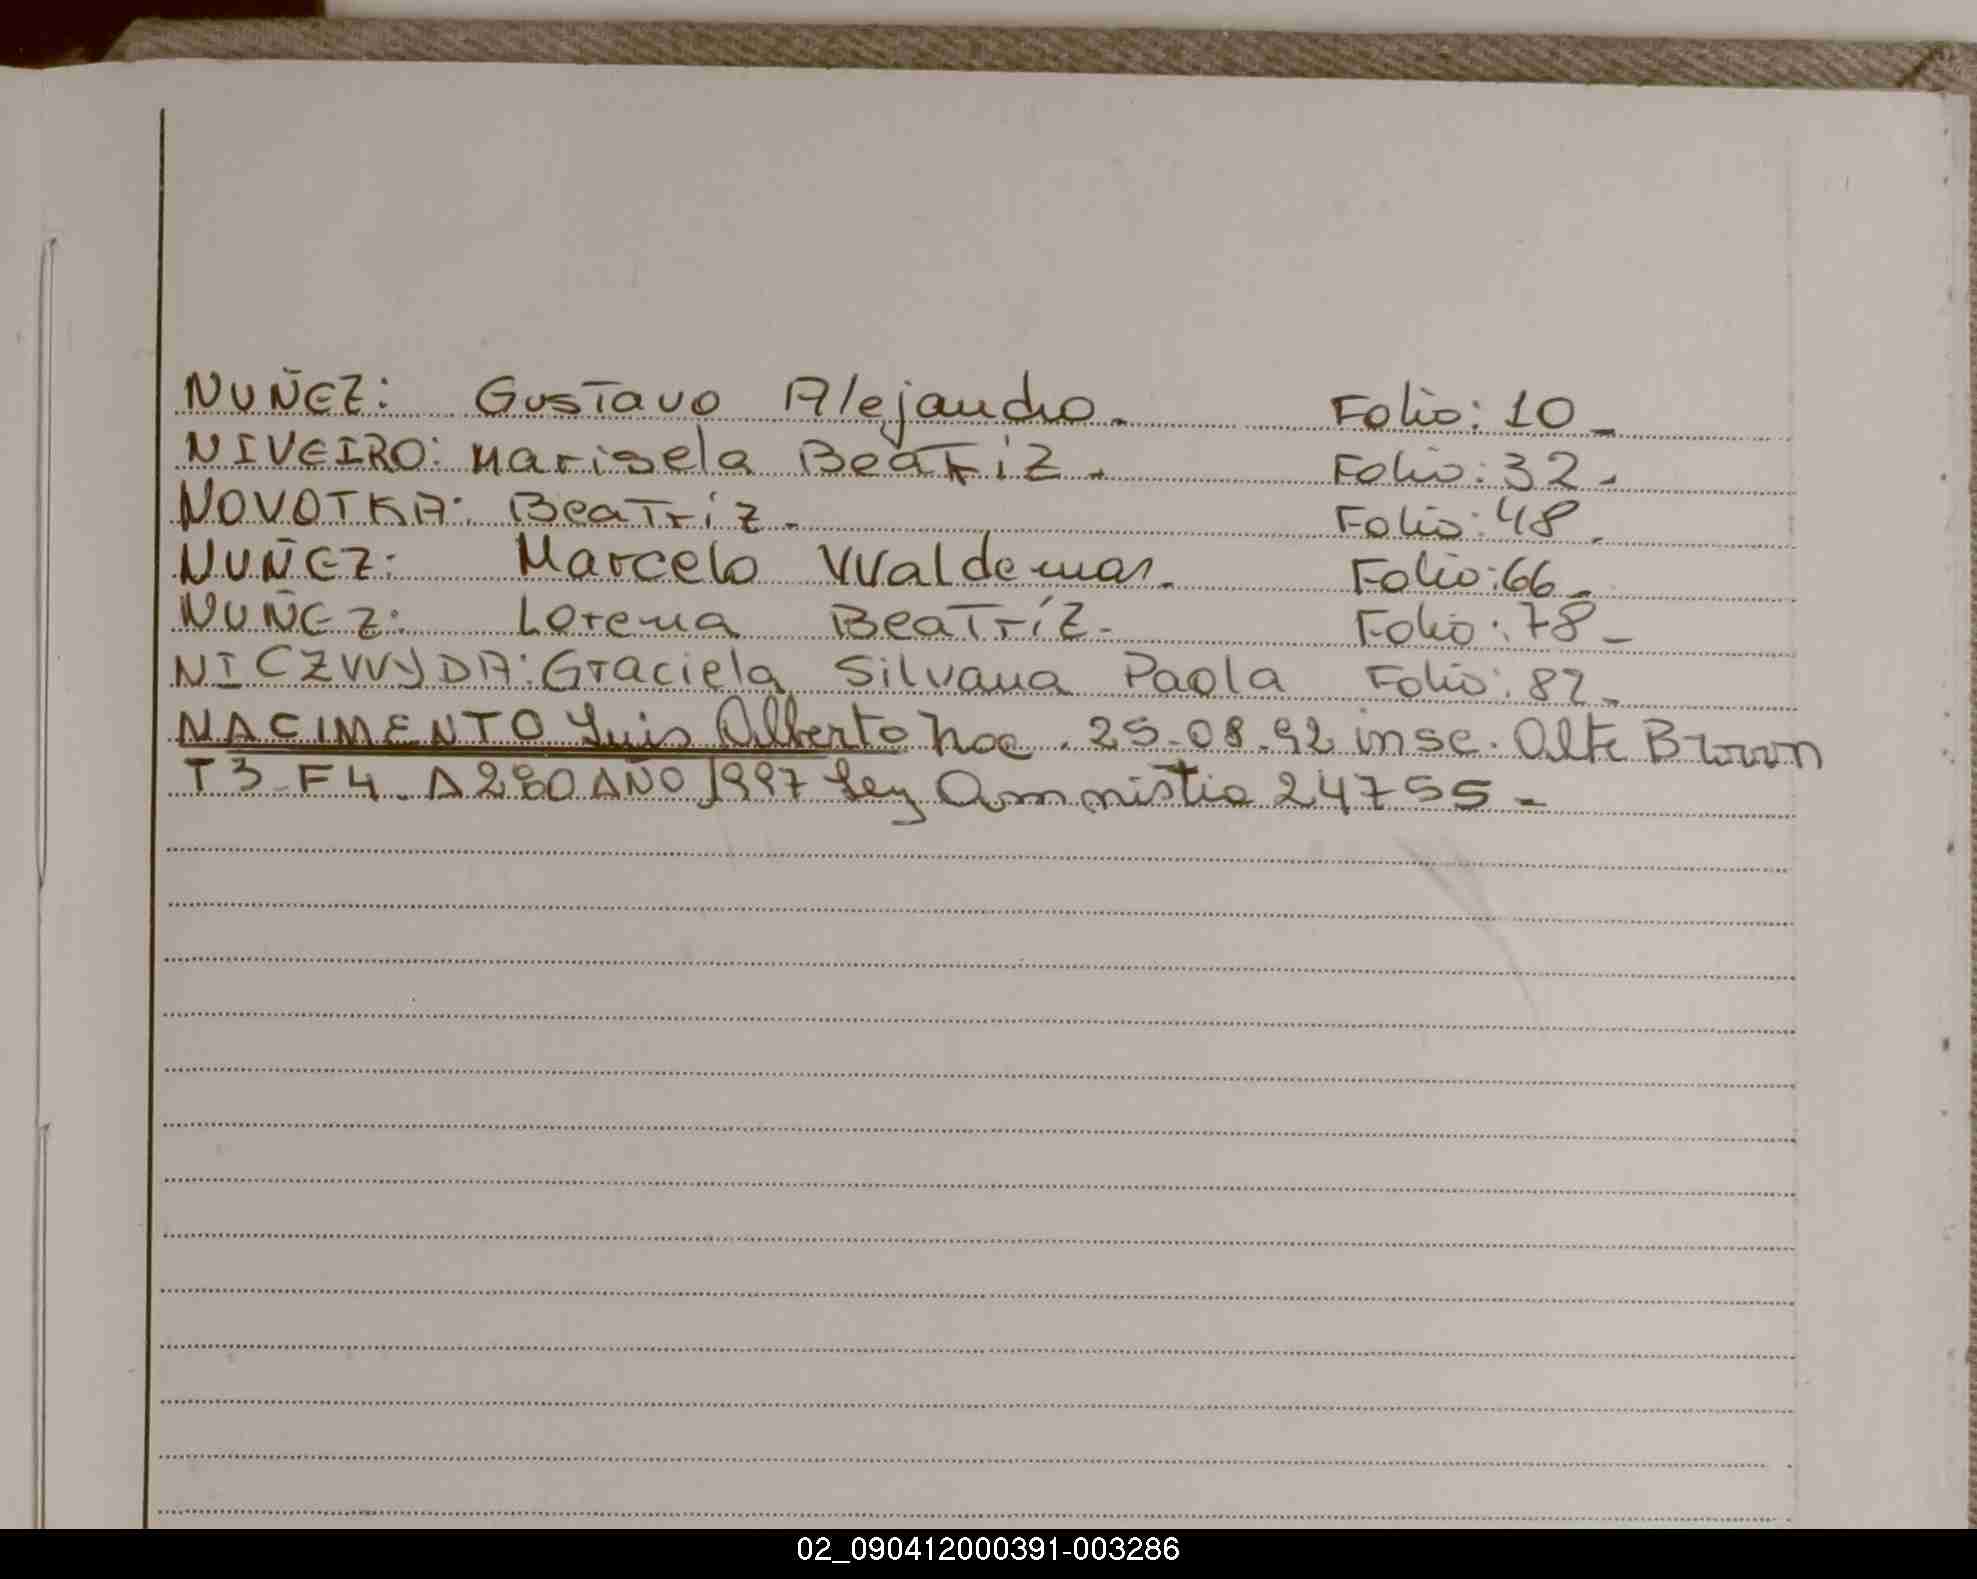 NUÑEZ: Gustavo Alejandro. Folio: 10_
NIVEIRO: Marisela Beatriz. Folio: 32-
NOVOTKA: Beatriz. Folio: 48.
NUÑEZ: Marcelo Waldemar. Folio: 66_
NUÑEZ: Lorena Beatríz. Folio: 78_
NICZWYDA: Graciela Silvana Paola Folio: 82-
NACIMENTO Luis Alberto nac. 25-08-92 insc. Alte Brown
T3-F4. A280 AÑO 1997 Ley Amnistia 24755-
02_090412000391-003286